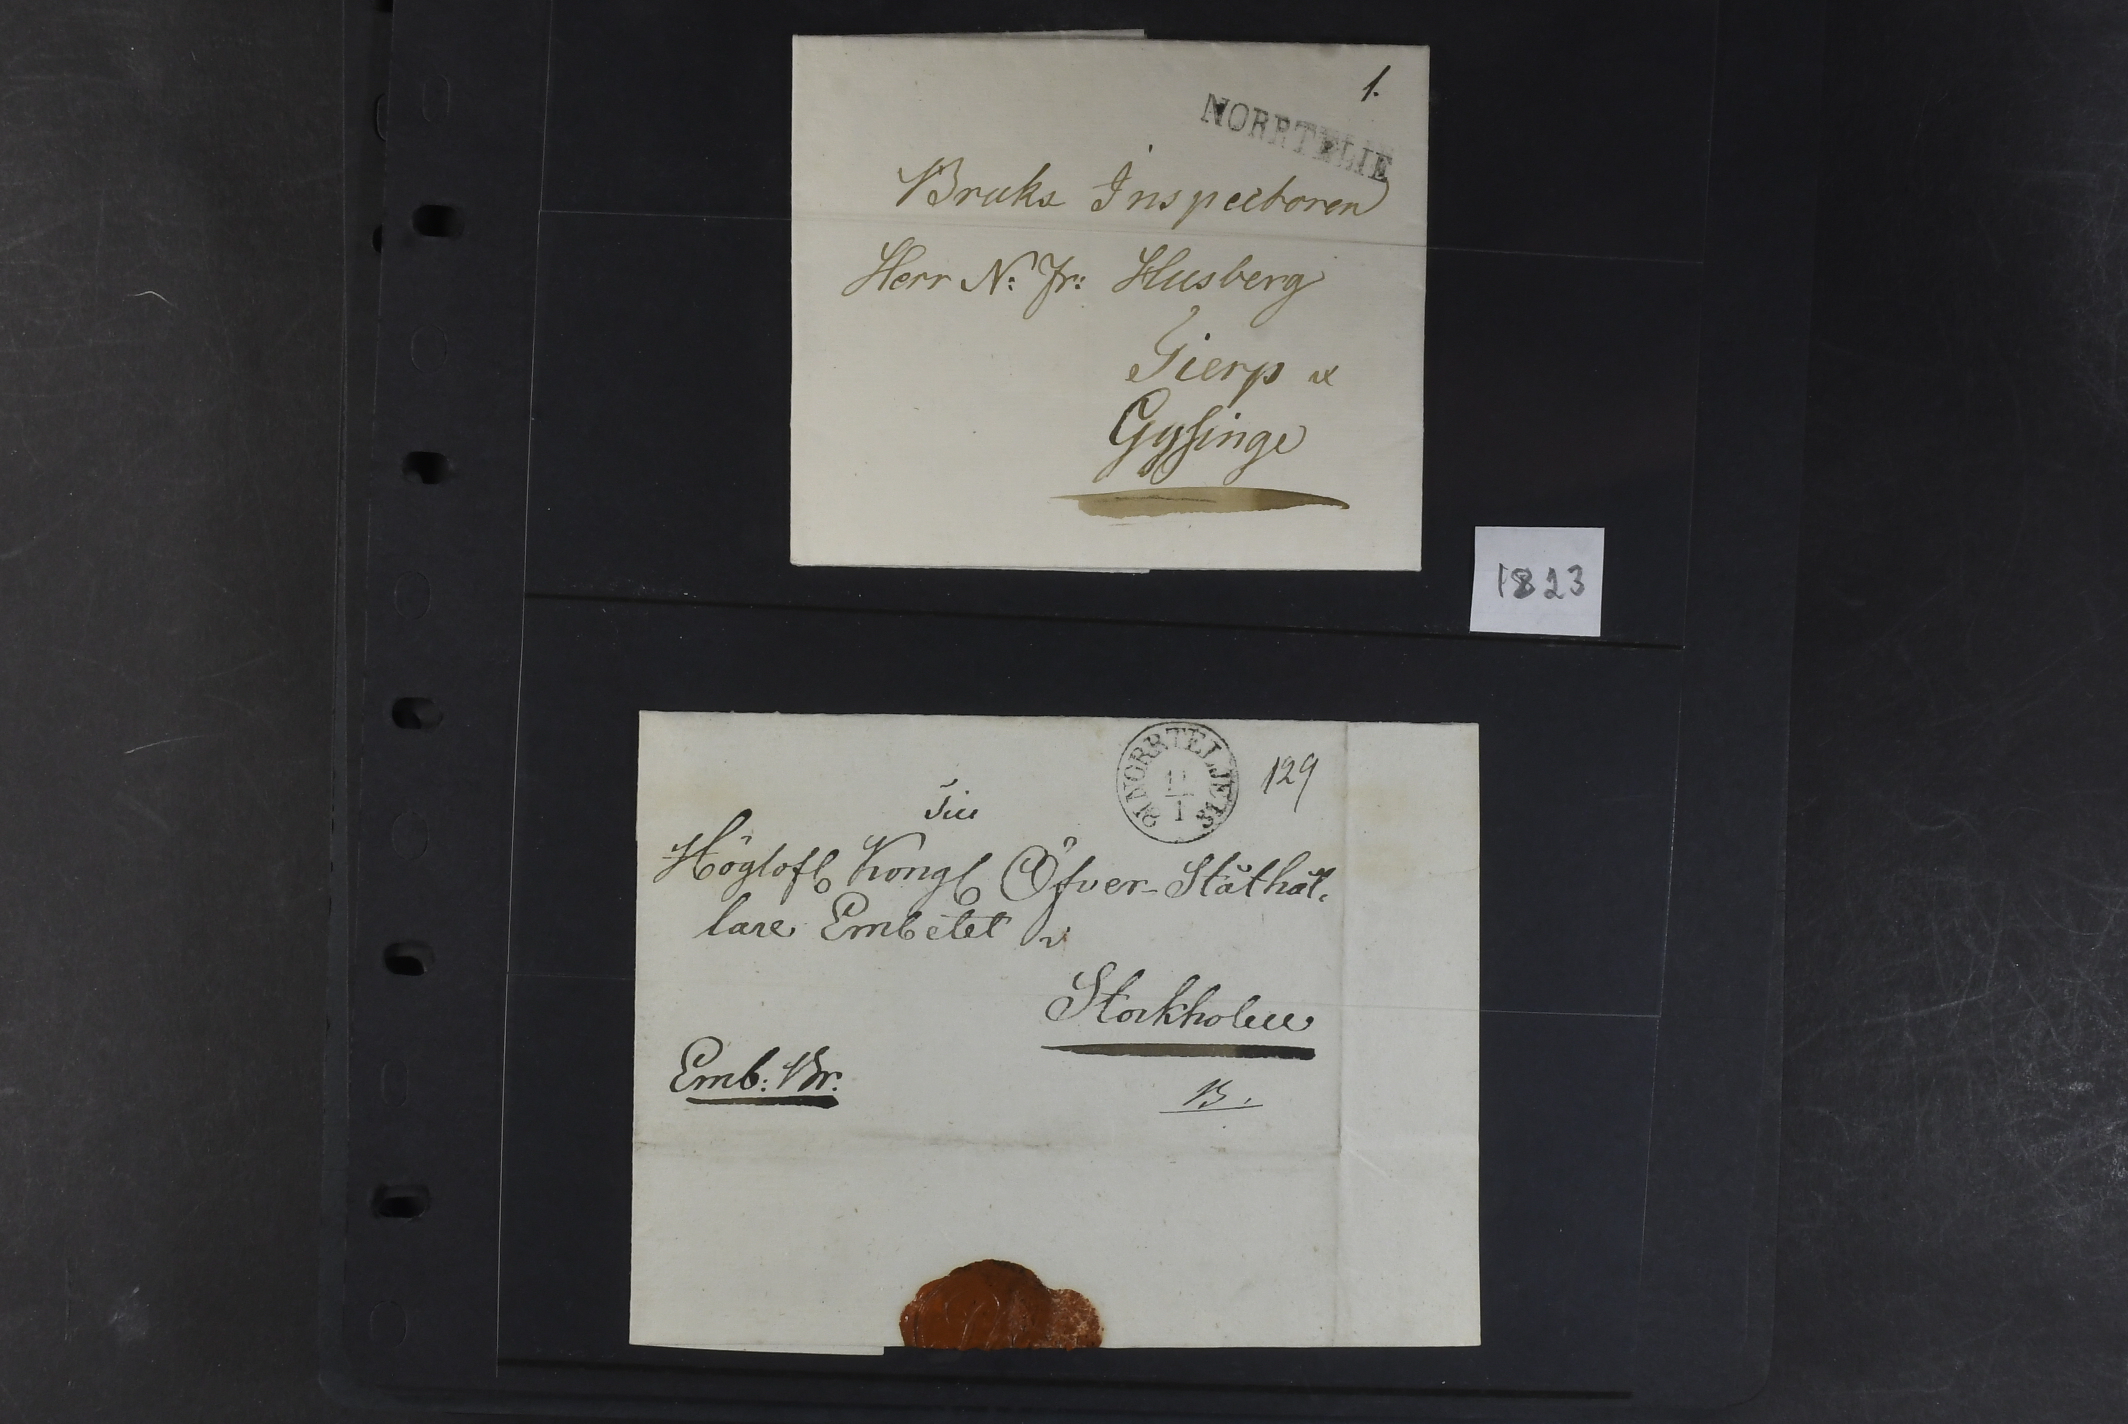 1.
NORRTELIE
Bruks Inspectoren
Herr N: Fr: Husberg
Tierp &
Gysinge
1823
NORRTELJE
11
1
129
Till
Höglofl Kongl Öfver-Ståthål,
lare Embetet i
Stockholm
Emb: Br.
B.